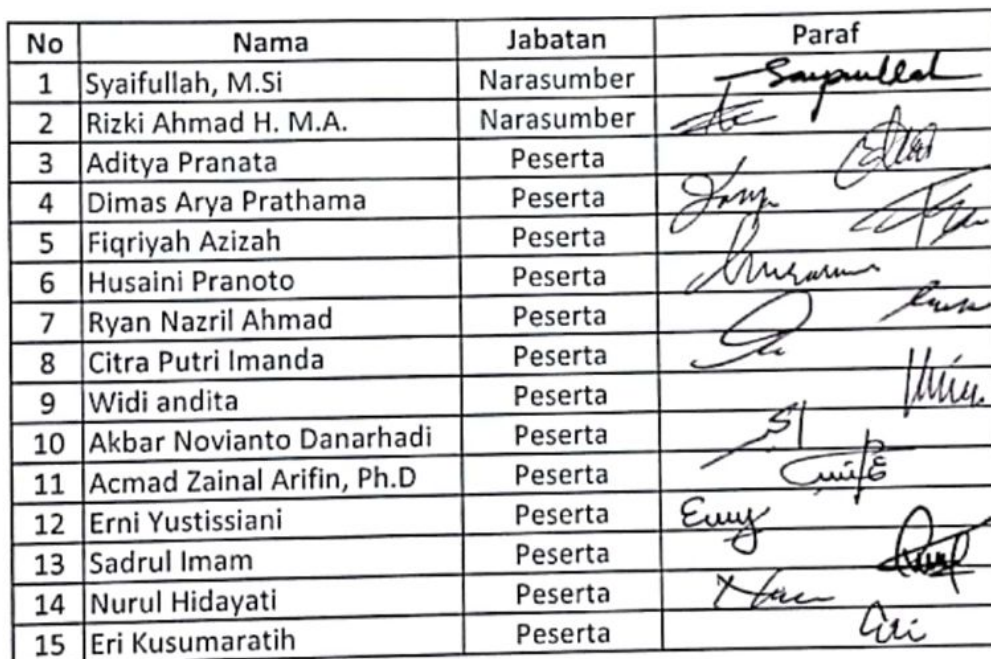 No Nama Jabatan Paraf
1 Syaifullah, M.Si Narasumber
2 Rizki Ahmad H. M.A. Narasumber
3 Aditya Pranata Peserta
4 Dimas Arya Prathama Peserta
5 Fiqriyah Azizah Peserta
6 Husaini Pranoto Peserta
7 Ryan Nazril Ahmad Peserta
8 Citra Putri Imanda Peserta
9 Widi andita Peserta
10 Akbar Novianto Danarhadi Peserta
11 Acmad Zainal Arifin, Ph.D Peserta
12 Erni Yustissiani Peserta
13 Sadrul Imam Peserta
14 Nurul Hidayati Peserta
15 Eri Kusumaratih Peserta